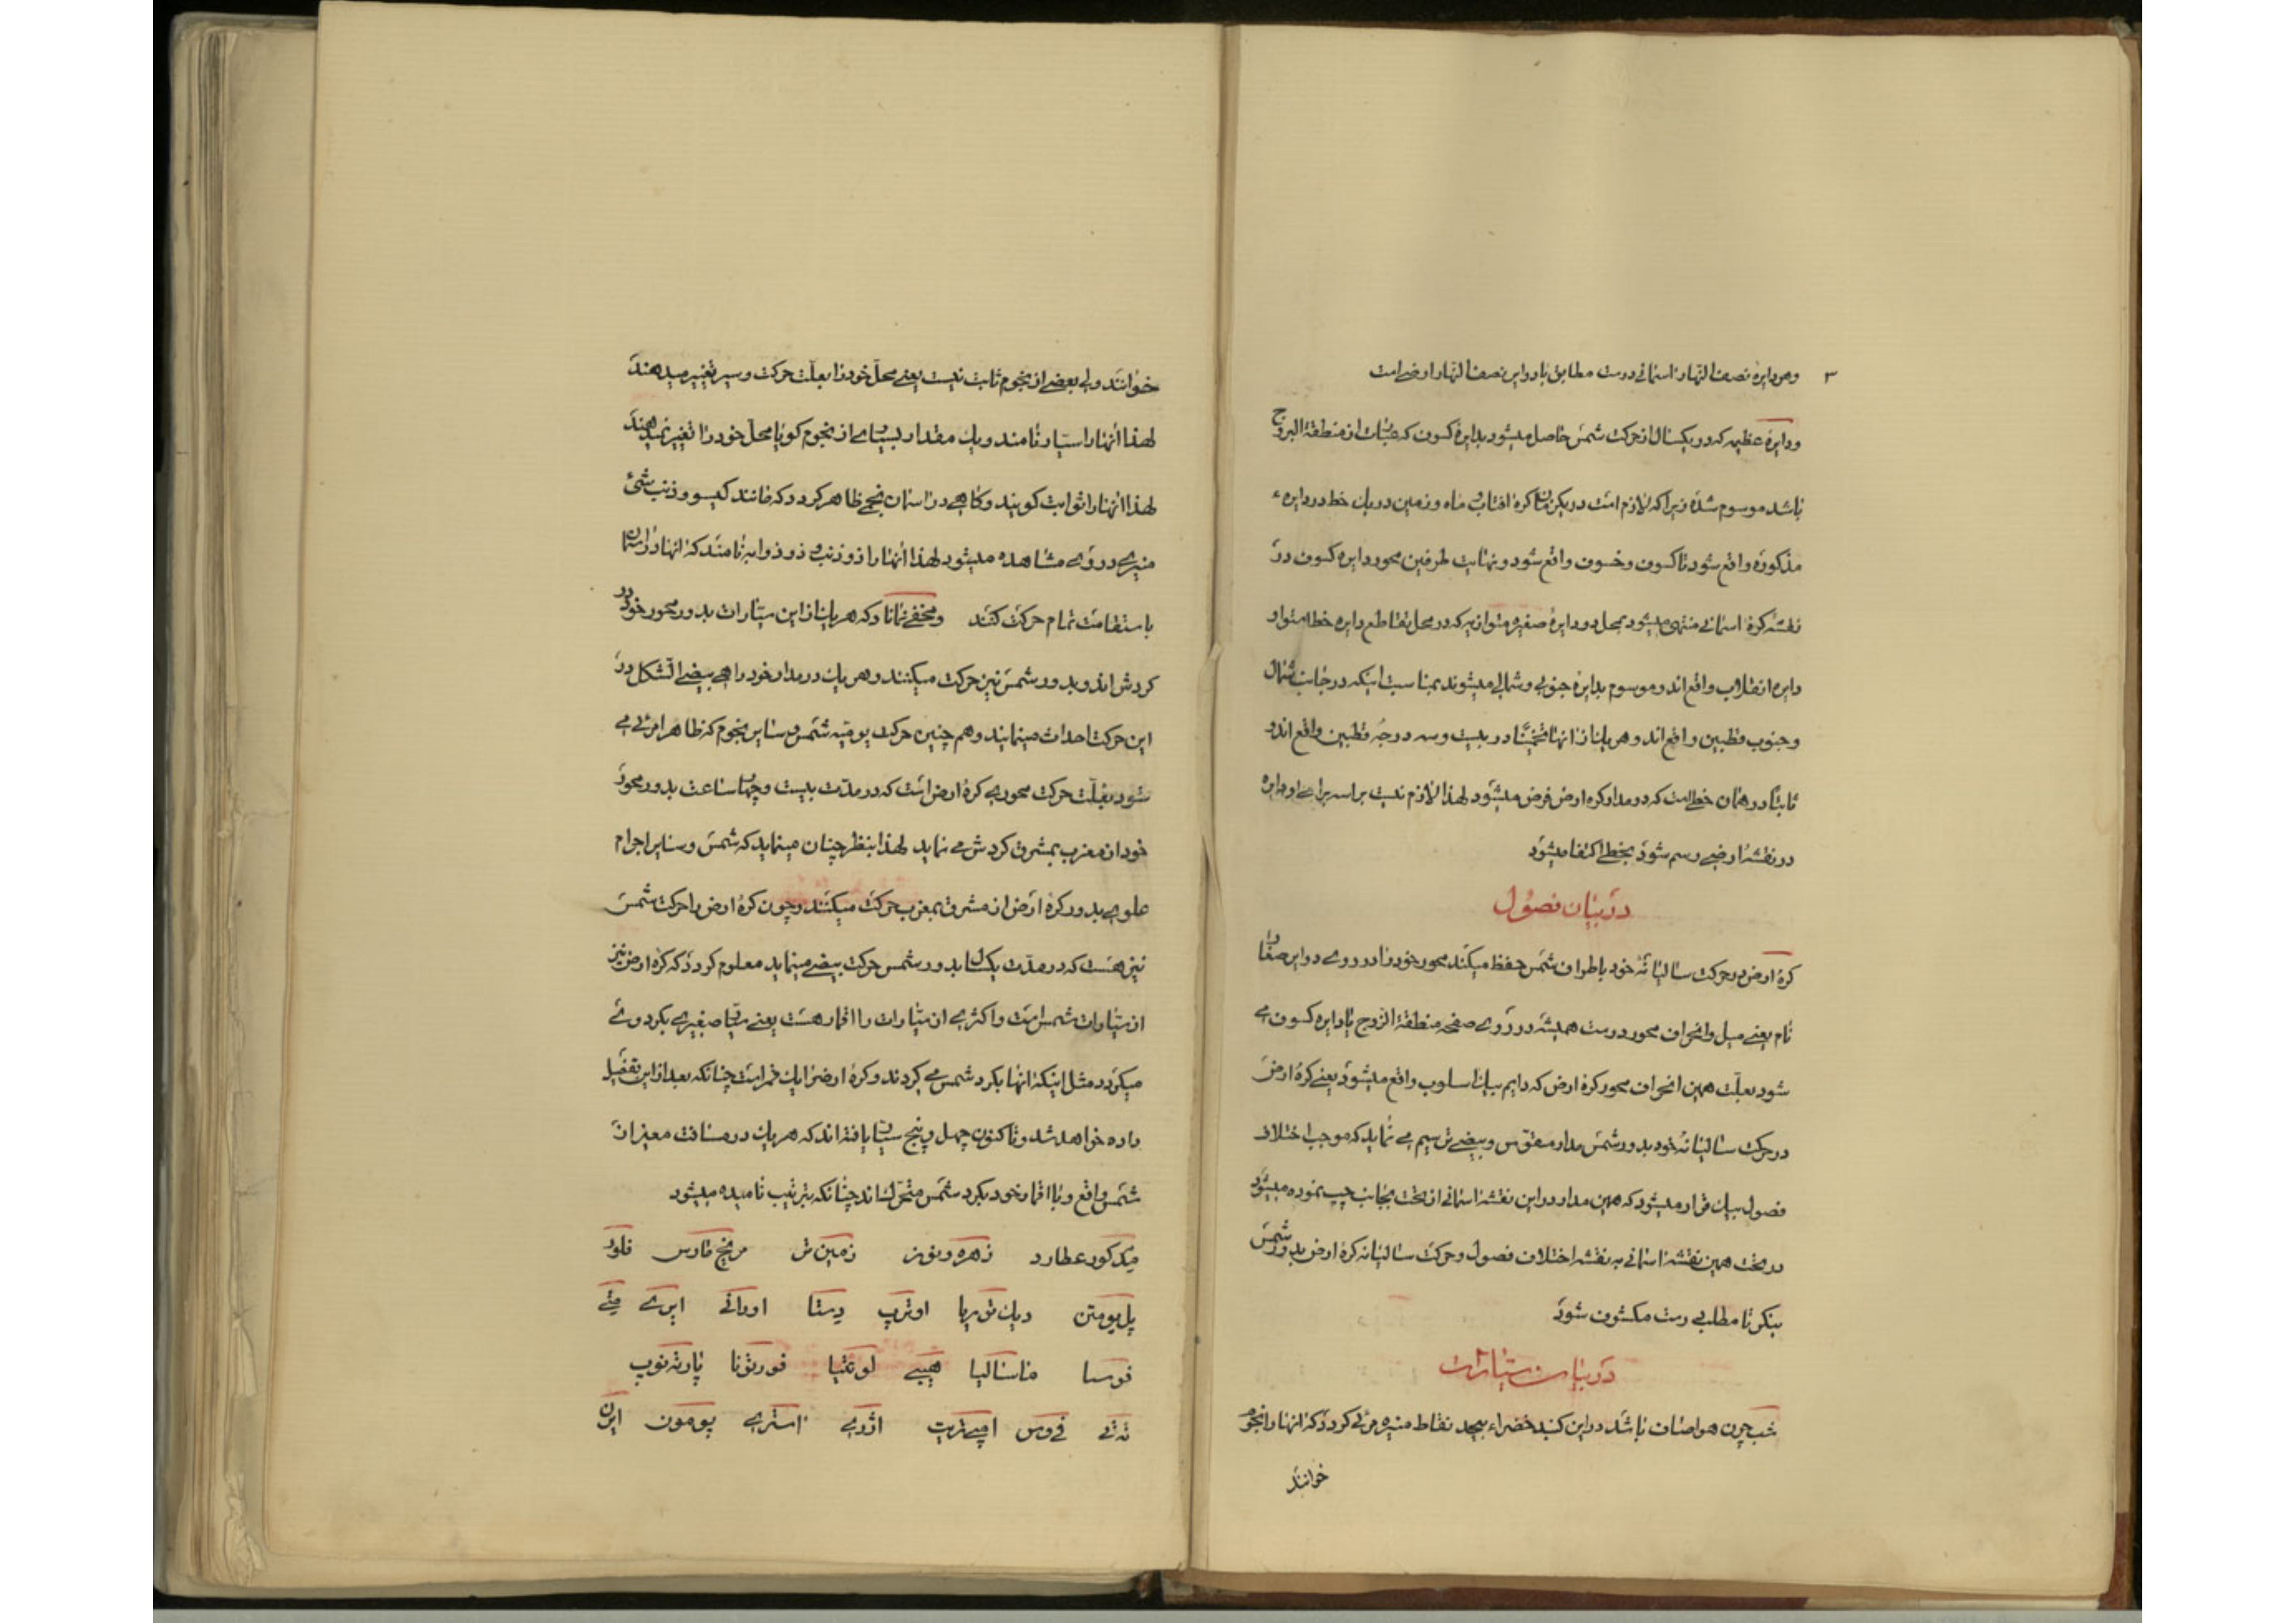 ۳ وهر دایره نصف النهار اسمانی درست مطابق با دوایر نصف النهار ارضی است
ودایرۀ عظیمه که در یکسال از حرکت شمس حاصل میشود بدایرۀ کسوف که عبارت از منطقة البروج
باشد موسوم شده زیرا که لازم است در یکزمان کرۀ افتاب و ماه و زمین در یک خط در دایرهء
مذکوره واقع شود تا کسوف و خسوف واقع شود و نهایت طرفین محور دایره کسوف در
نقشۀ کرۀ اسمانی منتهی میشود بمحل دو دایرۀ صغیره متوازیه که در محل تقاطع دایره خط استوا و
دایره انقلاب واقع اند و موسوم بدایرۀ جنوبی و شمالی میشوند بمناسبت اینکه در جانب شمال
و جنوب قطبین واقع اند و هر یک از انها تخمیناً در بیست و سه درجۀ قطبین واقع اند و
ثابتاً در همان خطی است که در مدار کره ارض فرض میشود لهذا لازم نیست براسه برای او دایره
در نقشۀ ارضی رسم شود بخطی اکتفا میشود
در بیان فصول
کرۀ ارض در حرکت سالیانۀ خود باطراف شمس حفظ میکند محور خود را در روی دوایر صفا
نام یعنی میل وانحراف محور درست همیشه در روی صفحه منطقة البروج یا دایره کسوف می
شود بعلت همین انحراف محور کرۀ ارض که دایم بیک اسلوب واقع میشود یعنی کرۀ ارض
در حرکت سالیانۀ خود بدور شمس مدار مقوس و بیضی ترسیم می نماید که موجب اختلاف
فصول بیک قرار میشود که همین مدار در این نقشۀ اسمانی از تحت بجانب چپ نموده میشود
در تحت همین نقشۀ اسمانی به نقشۀ اختلاف فصول و حرکت سالیانه کرۀ ارض بدور شمس
بنگر تا مطالب درست مکشوف شود
در بیان سیارات
شب چون هوا صاف باشد در این گنبد خضراء بیحد نقاط منیره مرئی گردد که انها را نجوم
خوانند
خوانند ولی بعضی از نجوم ثابت نیست یعنی محل خود را بعلت حرکت و سیر تغییر میدهند
لهذا انها را سیار نامند و یک مقدار بسیاری از نجوم گویا محل خود را تغییر نمیدهند
لهذا انها را ثوابت گویند و گاهی در اسمان نجمی ظاهر گردد که مانند گیسو و ذنب شیئ
منیری در وی مشاهده میشود لهذا انها را ذو ذنب و ذو ذوابه نامند که انها در اسمان
باستقامت تمام حرکت کنند ومخفی نماناد که هر یک از این سیارات بدور محور خود در
گردش اند و بدور شمس نیز حرکت میکنند و هر یک در مدار خود راهی بیضی الشکل در
این حرکت احداث مینمایند و هم چنین حرکت یومیه شمس و سایر نجوم که ظاهرا مرئی می
شود بعلت حرکت محوری کرۀ ارض است که در مدت بیست و چهار ساعت بدور محور
خود از مغرب بمشرق گردش می نماید لهذا بنظر چنان مینماید که شمس و سایر اجرام
علوی بدور کرۀ ارض از مشرق بمغرب حرکت میکنند و چون کرۀ ارض را حرکت شمس
نیز هست که در مدت یکسال بدور شمس حرکت بیضی مینماید معلوم گردد که کرۀ ارض نیز
از سیارات شمس است و اکثری از سیارات را اقمار هست یعنی سیار صغیری بگرد وی
میگردد مثل اینکه انها بگرد شمس می گردند و کرۀ ارض را یک قمر است چنانکه بعد از این تفصیل
داده خواهد شد و تا کنون چهل و پنج سیار یافته اند که هر یک در مسافت معینی از
شمس واقع و با اقمار خود بگرد شمس متحرک اند چنانکه بترتیب نامیده میشود
میرکور عطارد زهره ونوز زمین تر مریخ مارس فلورا
اوترپ وستا اورانی ایری متی
فوسا ماسالیا هیبی لوتتیا فورتونا پارته نوپ
ته تی استری پومون ایرن